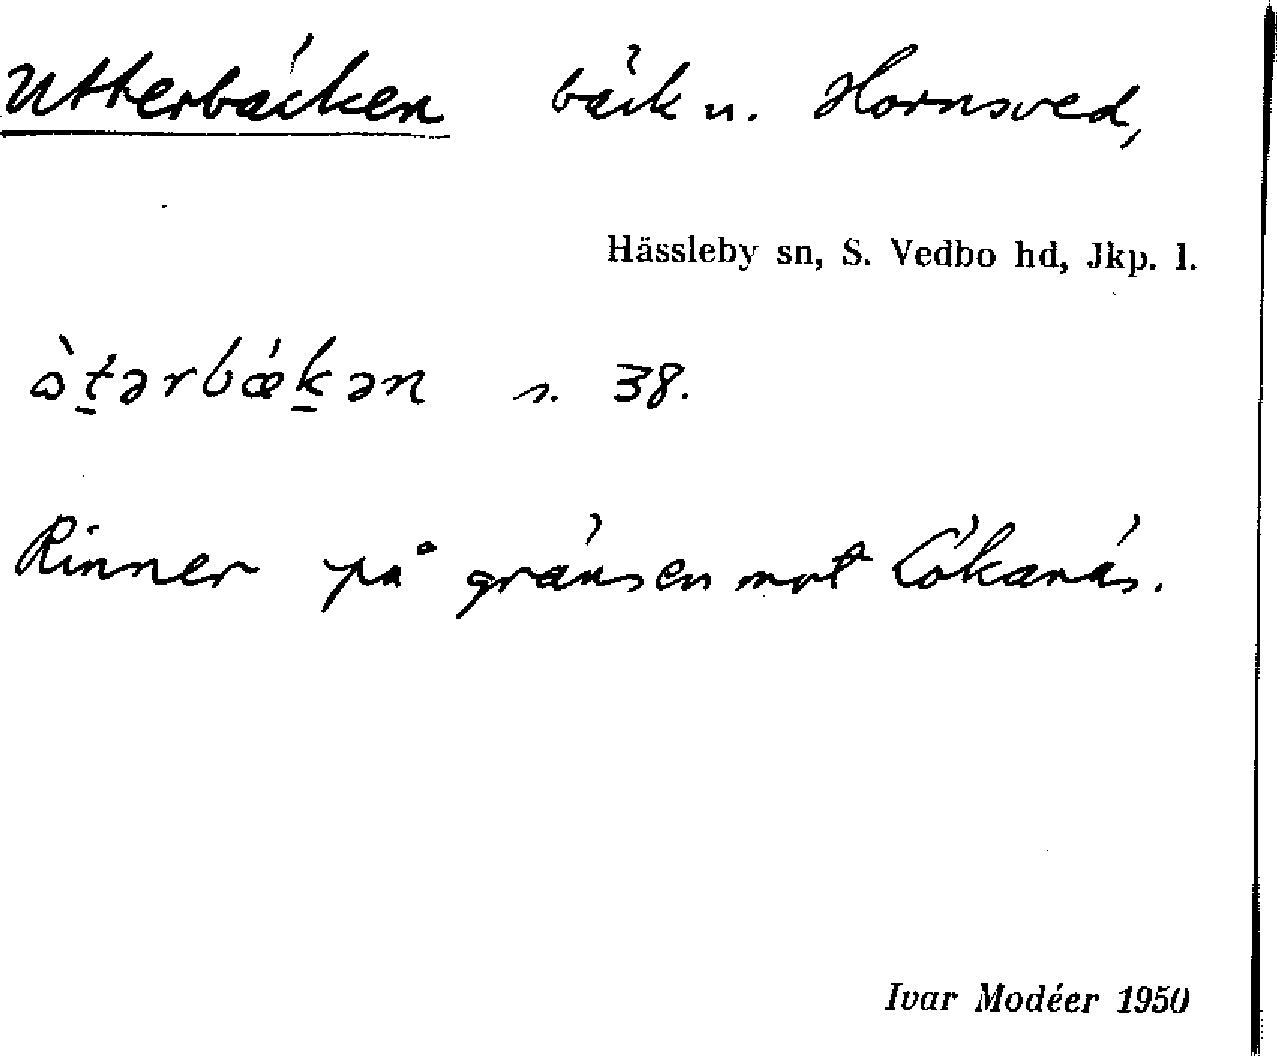 Utterbäcken bäck u. Hornsved,
Hässleby sn, S. Vedbo hd, Jkp. l.
òt̠ərbǽk̠ən s. 38.
Rinner på gränsen mot Lökanäs.
Ivar Modéer 1950